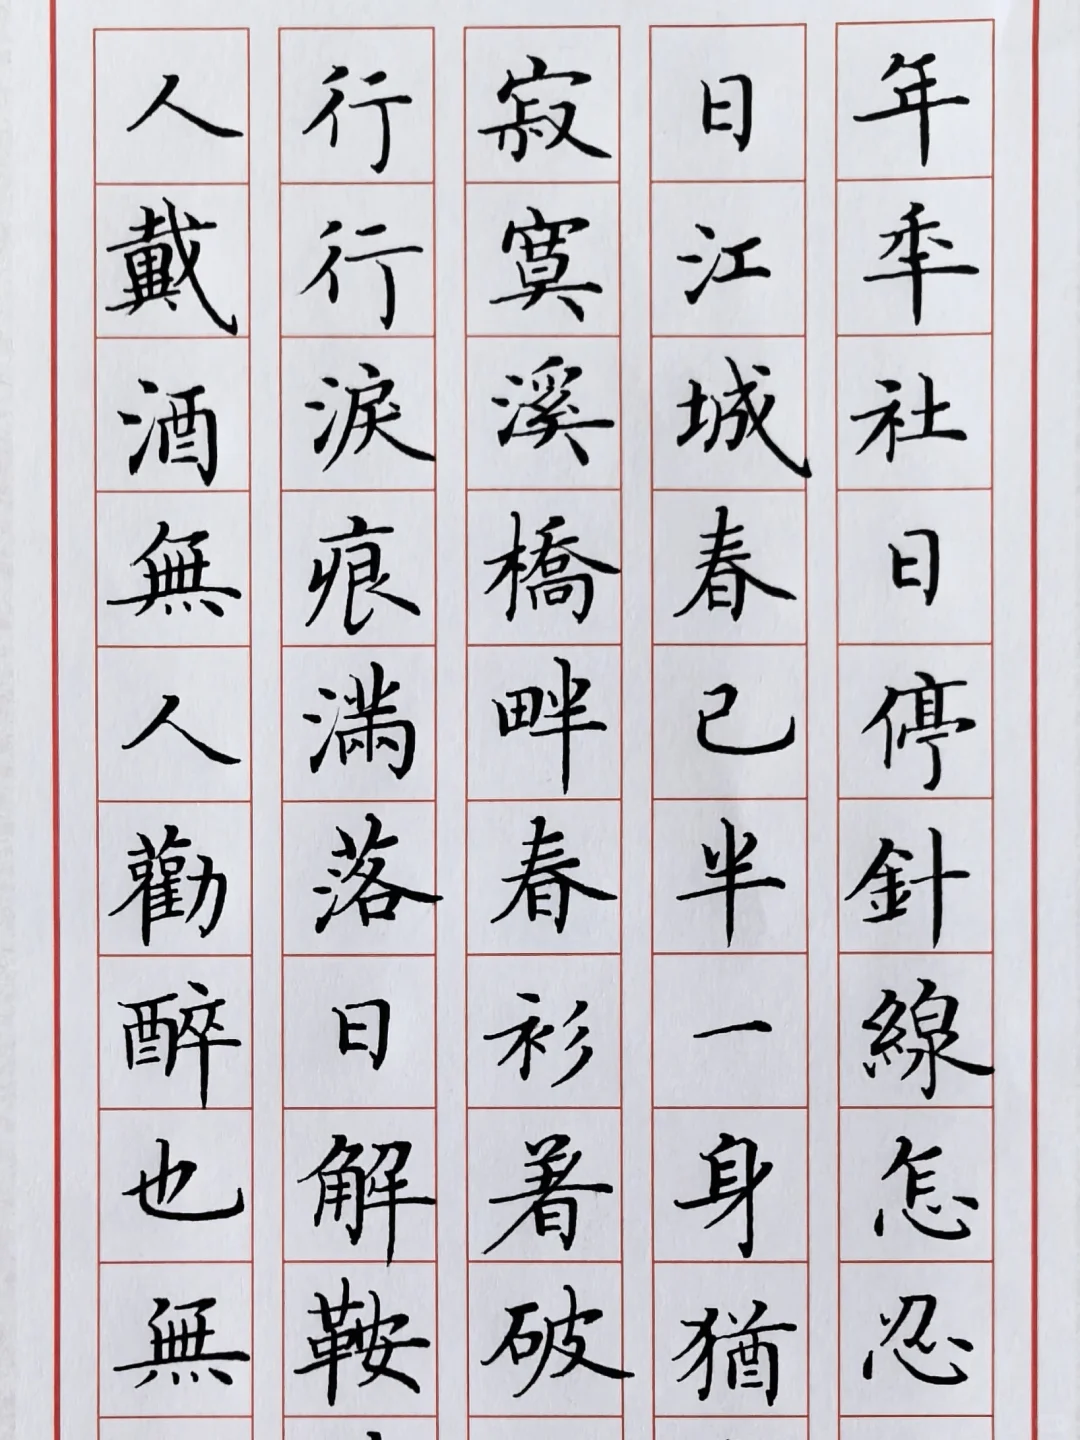 年秊社日停針線怎忍
日江城春已半一身猶
寂寞溪橋畔春衫著破
行行淚痕滿落日解鞍
人戴酒無人勸醉也無